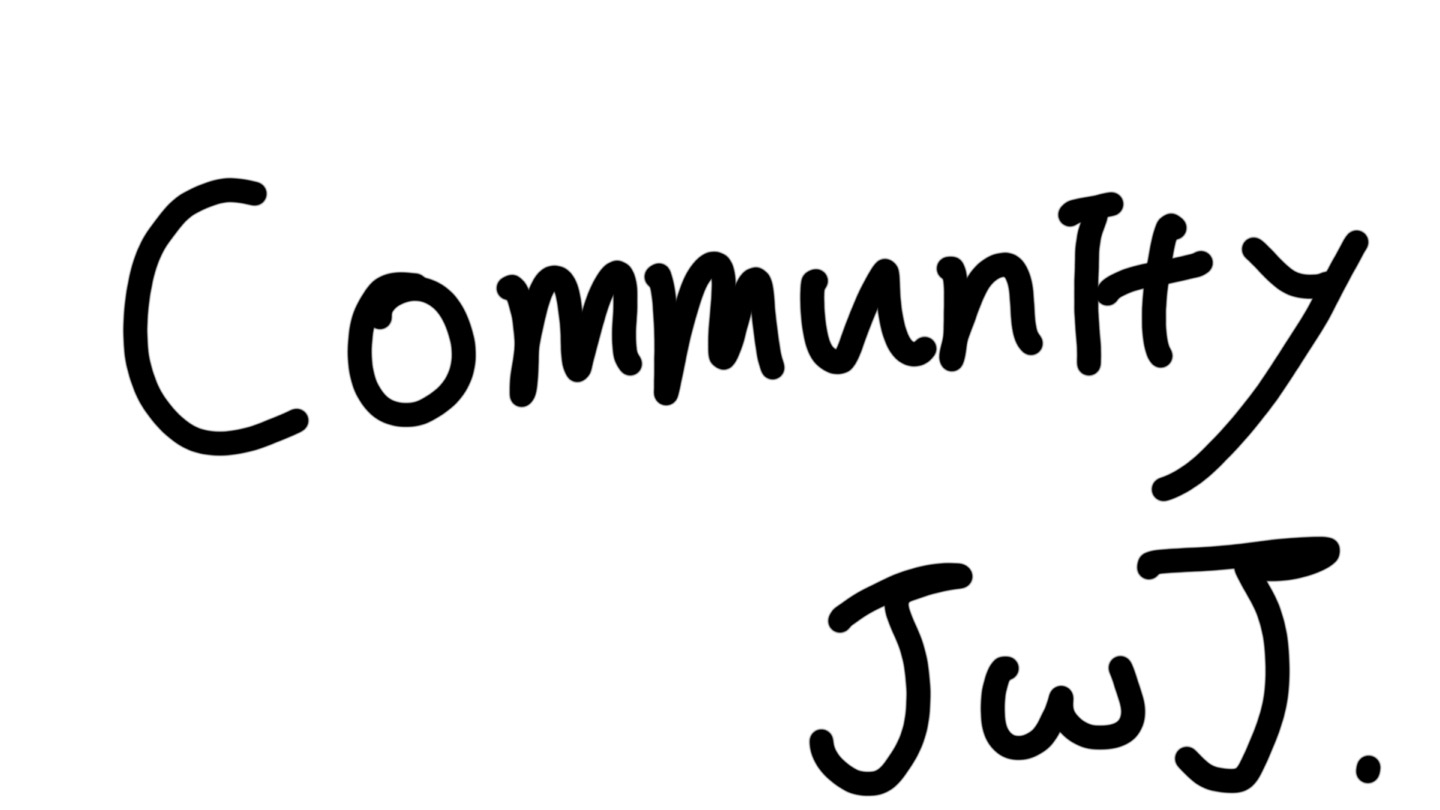 Community
JwJ.